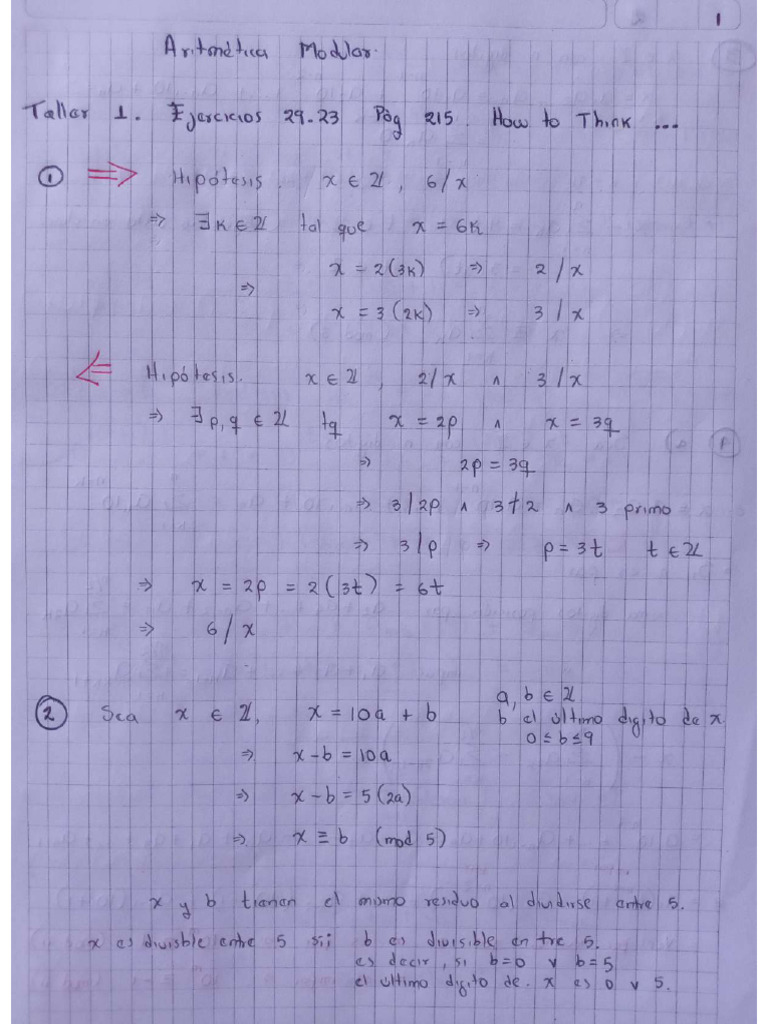 1
Aritmética Modular.
Taller 1. Ejercicios 29.23 Pág 215. How to Think ...
① ⇒ Hipótesis. x ∈ ℤ, 6/x
⇒ ∃ k ∈ ℤ tal que x = 6k
x = 2(3k) ⇒ 2/x
⇒
x = 3(2k) ⇒ 3/x
⇐ Hipótesis. x ∈ ℤ, 2/x ∧ 3/x
⇒ ∃ p, q ∈ ℤ tq x = 2p ∧ x = 3q
⇒ 2p = 3q
⇒ 3/2p ∧ 3∤2 ∧ 3 primo
⇒ 3/p ⇒ p = 3t t ∈ ℤ
⇒ x = 2p = 2(3t) = 6t
⇒ 6/x
② Sea x ∈ ℤ, x = 10a + b a, b ∈ ℤ
b el último dígito de x
0 ≤ b ≤ 9
⇒ x-b = 10a
⇒ x-b = 5(2a)
⇒ x ≡ b (mod 5)
x y b tienen el mismo residuo al dividirse entre 5.
x es divisble entre 5 sii b es divisible entre 5.
es decir, si b=0 ∨ b=5
el último dígito de x es 0 ∨ 5.